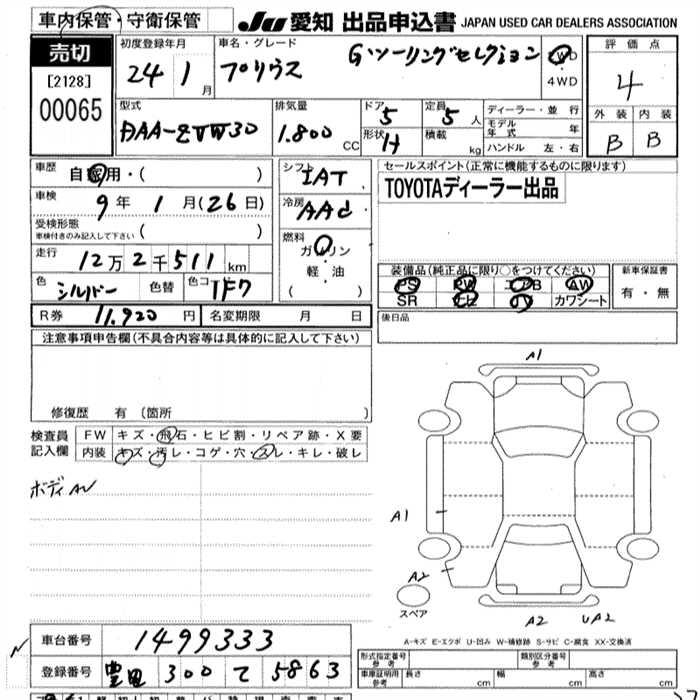 車内保管・守衛保管
JU 愛知 出品申込書 JAPAN USED CAR DEALERS ASSOCIATION
売切
[2128]
00065
初度登録年月
24 1 月
車名・グレード
プリウス Gツーリングセレクション
2WD
4WD
評価点
4
外装 内装
B B
型式
DAA-ZVW30
排気量
1.800 CC
ドア 5
形状 H
定員 5 人
積載 kg
ディーラー・並行
モデル年式 年
ハンドル 左・右
車歴 自家用・( )
車検 9年 1月(26日)
受検形態
車検付きのみ記入して下さい ( )
走行 12万2千511km
色 シルバー 色替 色コ 1F7
R券 11,920 円 名変期限 月 日
シフト
IAT
冷房
AAC
燃料
ガソリン
軽・油
( )
セールスポイント(正常に機能するものに限ります)
TOYOTAディーラー出品
装備品(純正品に限り○をつけてください)
PS PW エアB AW
SR ナビ TV カワシート
新車保証書
有・無
後日品
注意事項申告欄(不具合内容等は具体的に記入して下さい)
修復歴 有〔箇所 〕
検査員
記入欄
FW キズ・飛石・ヒビ割・リペア跡・X要
内装 キズ・汚レ・コゲ・穴・スレ・キレ・破レ
A1
A1
A2
スペア
A2 UA2
A-キズ E-エクボ U-凹み W-補修跡 S-サビ C-腐食 XX-交換済
車台番号 1499333
登録番号 豊田 300 て 5863
形式指定番号 参考
類別区分番号 参考
車庫証明用 参考 長さ cm 幅 cm 高さ cm